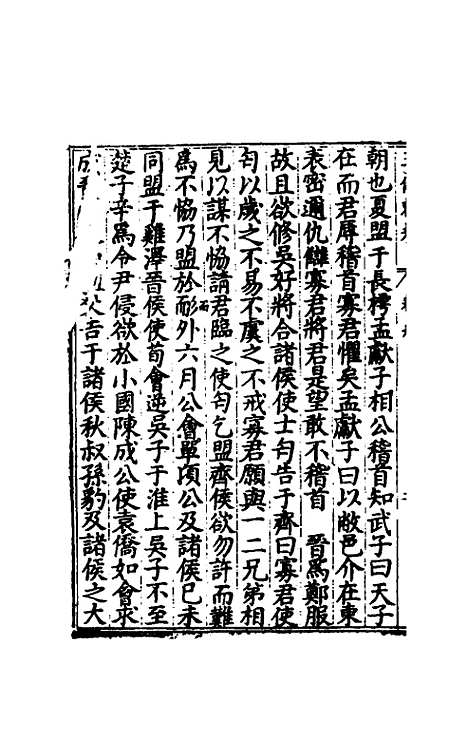 朝也夏盟于長樗孟獻子相公稽首知武子曰天子
在而君辱稽首寡君懼矣孟獻子曰以敝邑介在東
表密邇仇讎寡君將君是望敢不稽首　晉爲鄭服
故且欲修吳好將合諸侯使士匄告于齊曰寡君使
匄以歲之不易不虞之不戒寡君願與一二兄弟相
見以謀不協請君臨之使匄乞盟齊侯欲勿許而難
爲不協乃盟於耏外六月公會單頃公及諸侯已未
同盟于雞澤晉侯使荀會逆吳子于淮上吳子不至
楚子辛爲令尹侵欲於小國陳成公使袁僑如會求
成告于諸侯秋叔孫豹及諸侯之大